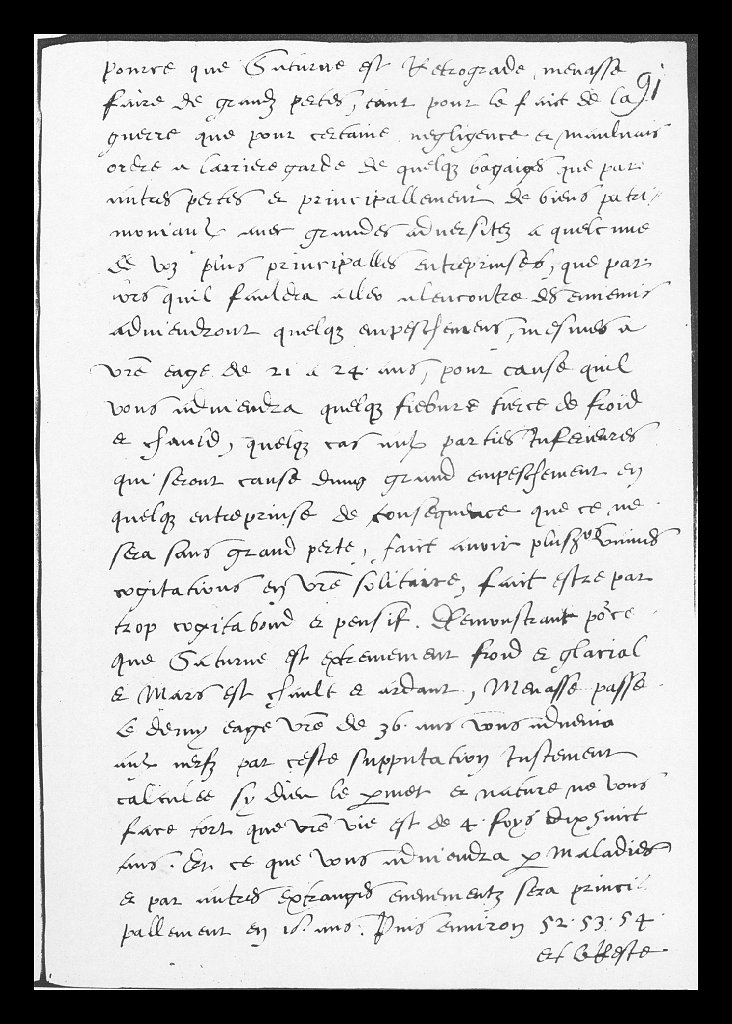 91
pource que Saturne est Retrograde, menasse
faire de grandz pertes, tant pour le faict de la
guerre que pour certaine negligence et maulvais
ordre a larrieregarde de quelqz bagaiges que par
autres pertes et principallement de biens patri-
moniaulx avec grandes adversitez a quelcune
de voz plus principalles entreprinses, que par
lors quil fauldra aller alencontre des ennemis
adviendront quelqz empeschemens, mesmes a
vrē eage de 21 a 24 ans, pour cause quil
vous adviendra quelqz fiebvre tierce de froid
et chauld, quelqz cas aulx parties Inferieures
qui seront cause dung grand empeschement en
quelqz entreprinse de consequence que ce ne
sera sans grand perte, faict avoir plusrs
cogitations en vrē solitaire, faict estre par
trop cogitabond et pensif. Remonstrant po'ce
que Saturne est extremement froid et glacial
et Mars est chault et ardant, Menasse passe
le derny eage vrē de 36 ans vous adviendra
aulx nerfz par ceste supputation Justement
calculee sy dieu le pmet et nature ne vous
face tort que vrē vie est de 4 foys dixhuict
ans. Et ce que vous adviendra p maladies
et par autres extranges evenementz sera princi-
pallement en 18 ans. Puis environ 52. 53. 54.
et le Reste